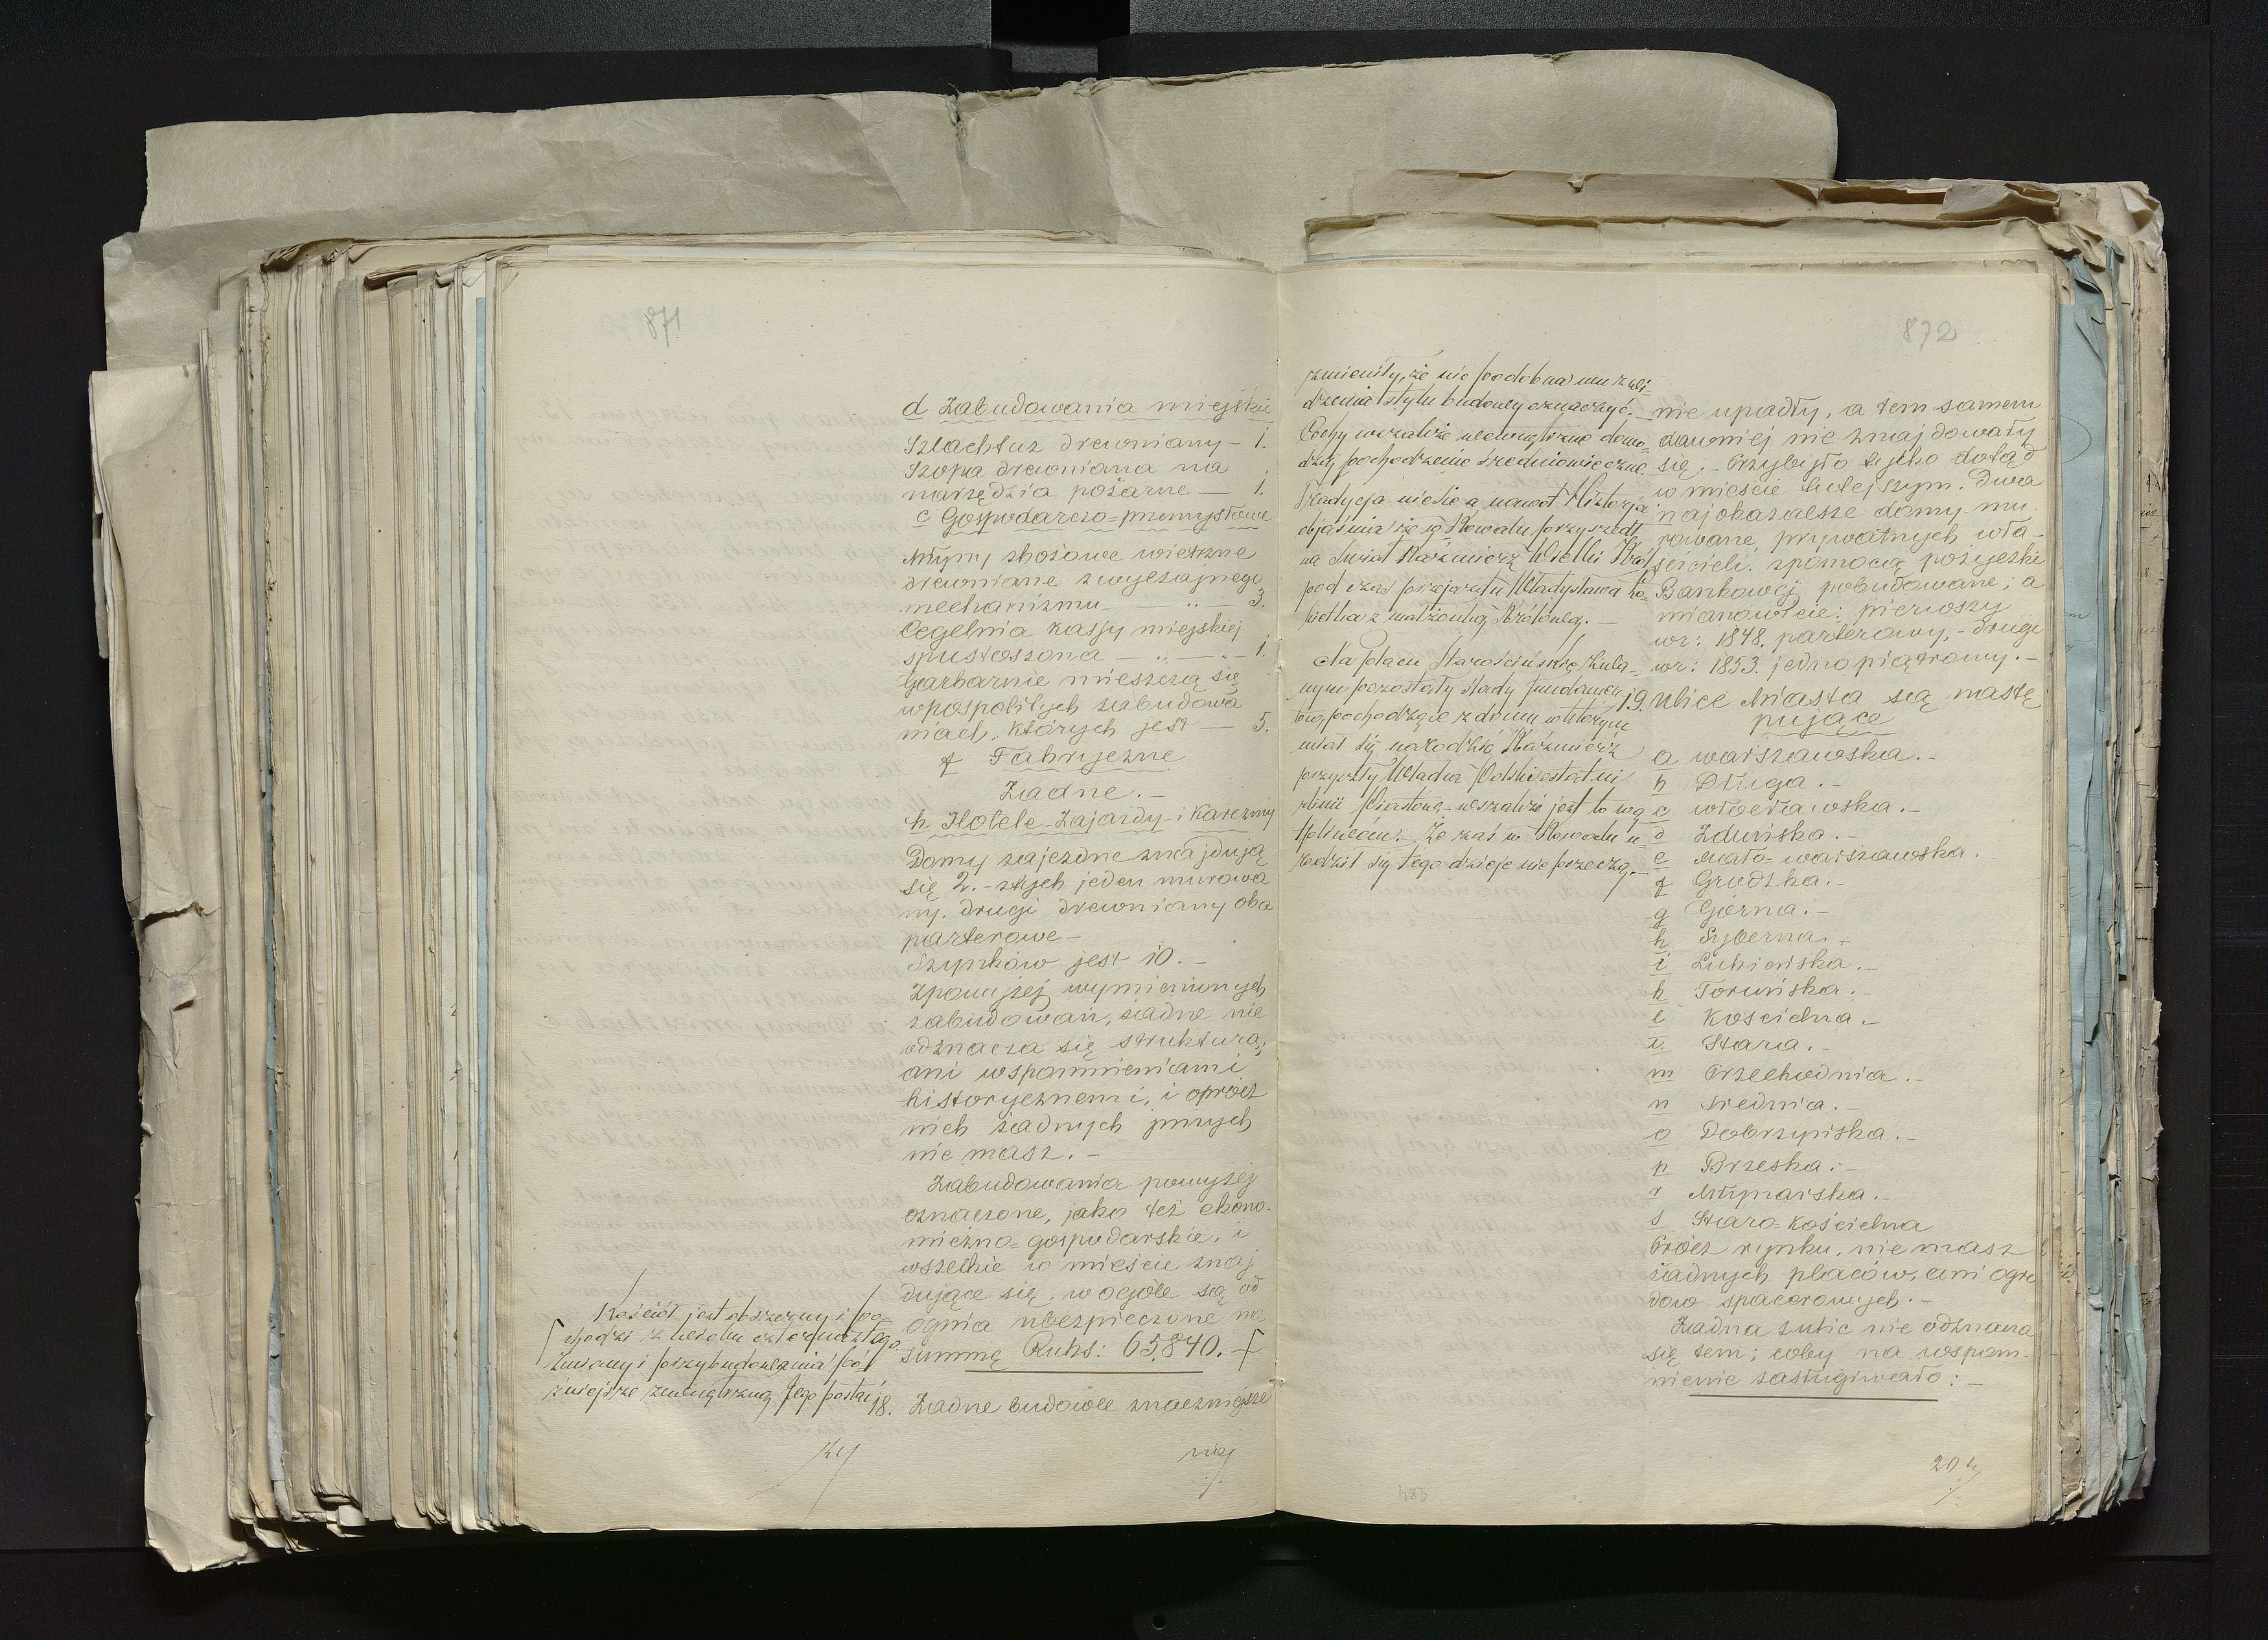 871
d Zabudowania miejskie
Szlachtuz drewniany – 1.
Szopa drewniana na
narzędzia pożarne — 1.
e Gospodarczo=przemysłowe
Młyny zbożowe wietrzne
drewniane zwyczajnego
mechanizmu — „ — 3.
Cegelnia kassy miejskiej
spustoszona — „ — „ — 1.
Garbarnie mieszczą się
wpospolitych zabudowa
niach, których jest — 5.
f Fabryczne
Żadne. –
h Hotele – Zajazdy – i Karczmy
Domy zajezdne znajdują
się 2. – zych jeden murowa
ny. drugi drewniany oba
parterowe –
Szynków jest 10. –
Zpowyżej wymienionych
zabudowań, żadne nie
odznacza się strukturą;
ani wspomnieniami
historycznemi, i oprócz
nich żadnych jnnych
nie masz. –
Zabudowania powyżej
oznaczone, jako też ekono-
miczno=gospodarskie, i
wszelkie w mieście znaj
dujące się, w ogóle są od
ognia ubezpieczone na
summę Rubs: 65,840. –
Kościół jest obszerny i po=
chodzi z wieku czternastego.
Zmiany i przybudowania póź
niejsze zewnętrzną jego postać
18. Żadne budowle znaczniejsze
zy
nig
872
zmieniły, że nie podobna mu z wi=
dzenia stylu budowy oznaczyć. –
Cechy wszakże wewnętrzne dowo=
dzą pochodzenie średniowieczne.
Tradycja niesie a nawet Historja
objaśnia że w Kowalu przyszedł
na świat Kaźmierz Wielki Król
pod czas przejazdu Władysława Ło=
kietka z małżonką Królową. –
Na placu Starościńskie Zwła=
nym pozostały ślady fundamen
tów, pochodzące z domu w którym
miał się narodzić Kaźmierz
przyszły Władca Polski ostatni
z linii Piastów – wszakże jest to wą
tpliwém. Że zaś w Kowalu u=
rodził się tego dzieje nie przeczą. –
nie upadły, a tem samem
dawniej nie znajdowały
się. – Przybyło tylko dotąd
w mieście tutejszym. Dwa
najokazalsze domy mu-
rowane, prywatnych wła-
ścicieli. zpomocą pożyczki
Bankowéj pobudowane; a
mianowicie: pierwszy
wr: 1848. parterowy, – drugi
wr: 1853. jedno piątrowy. –
19. Ulice Miasta są nastę
pujące
a warszawska. –
b Długa. –
c włocławska. –
d Zduńska. –
e Mało=warszawska.
f Grodzka. –
g Górna. –
h Syberna. –
i Lubieńska. –
k Toruńska. –
l Koscielna. –
ł. Stara. –
m Przechodnia. –
n Srednia. –
o Dobrzyńska. –
p Brzeska. –
r Młynarska. –
s Staro=Kościelna
Prócz rynku, nie masz
żadnych placów, ani ogro
dow spacerowych. –
Żadna zutic nie odznana
się tem; coby na wspom-
nienie zasługiwało: –
20 ty
483